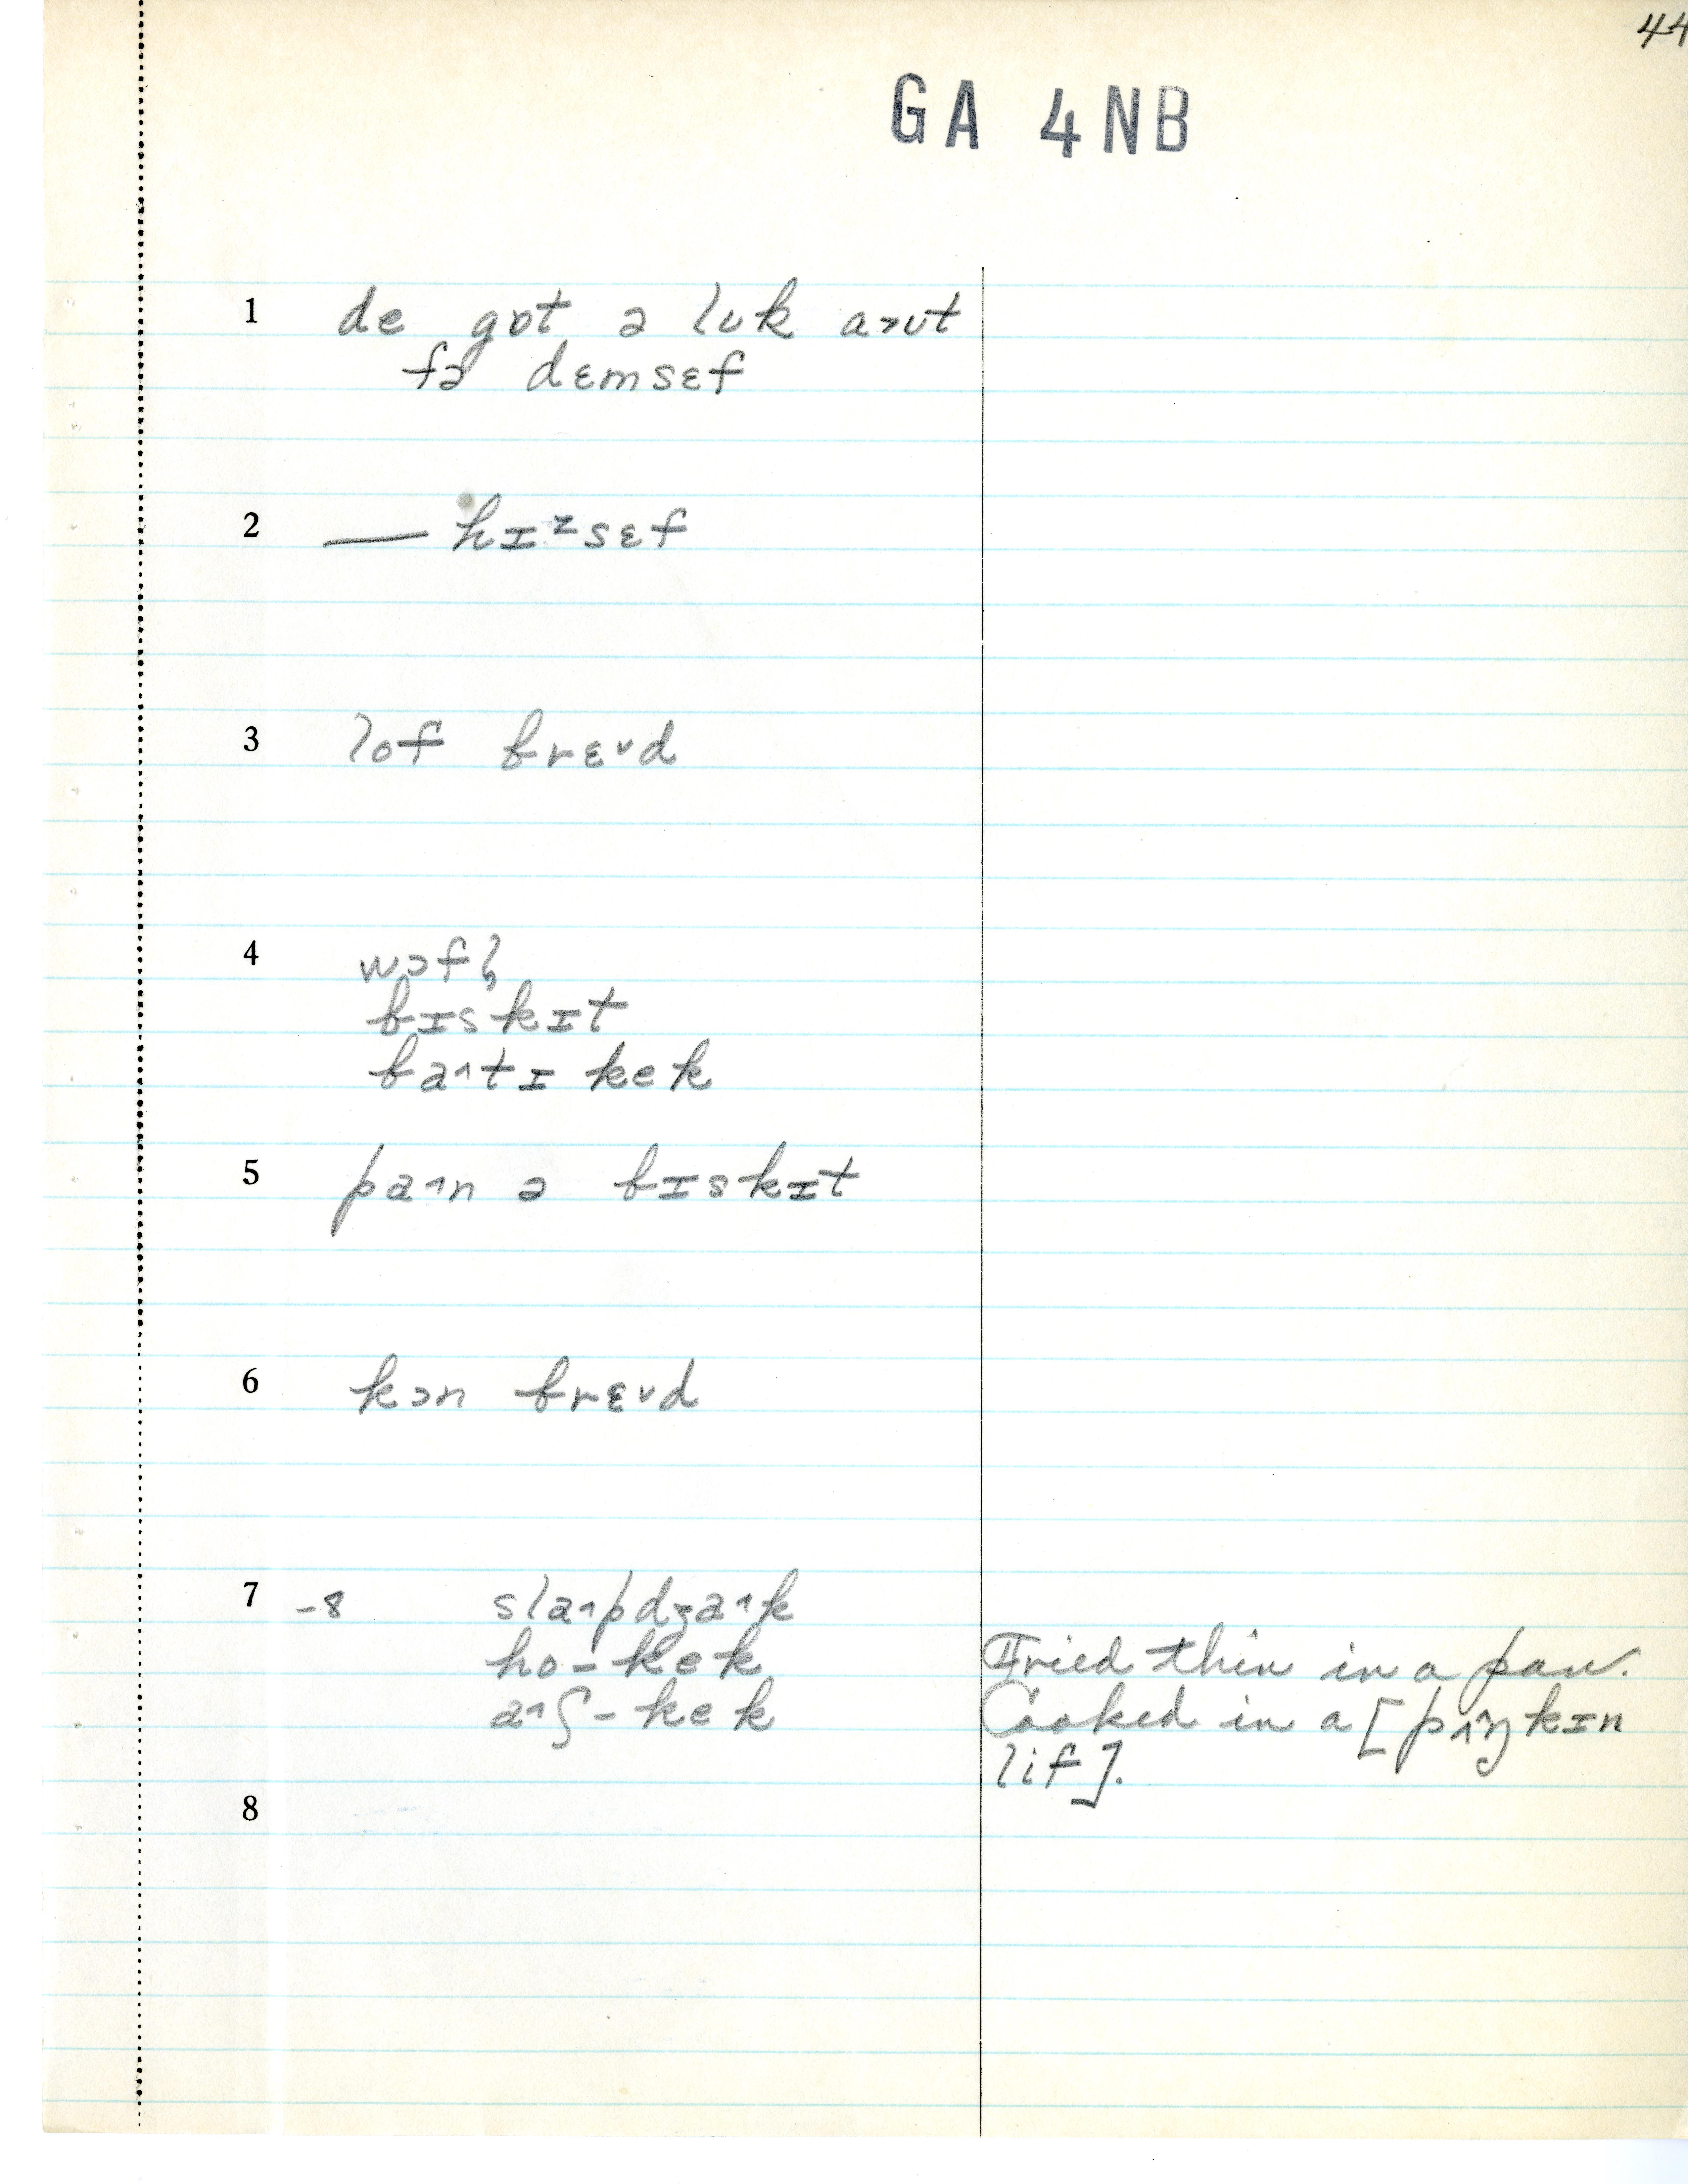 44
GA 4NB
1 de gɒt ə lʊk a˃ʊt
fə dɛmsɛf
2 — hɪᶻsɛf
3 lof brɛ˅d
4 wɔfl̩
bɪskɪt
ba˄tɪ kek
5 pa˄n ə bɪskɪt
6 kɔn brɛ˅d
7 -8 sla˄pdʒa˄k
ho-kek Fried thin in a pan.
a˄ʃ-kek Cooked in a [pʌ˄ŋkɪn
lif].
8